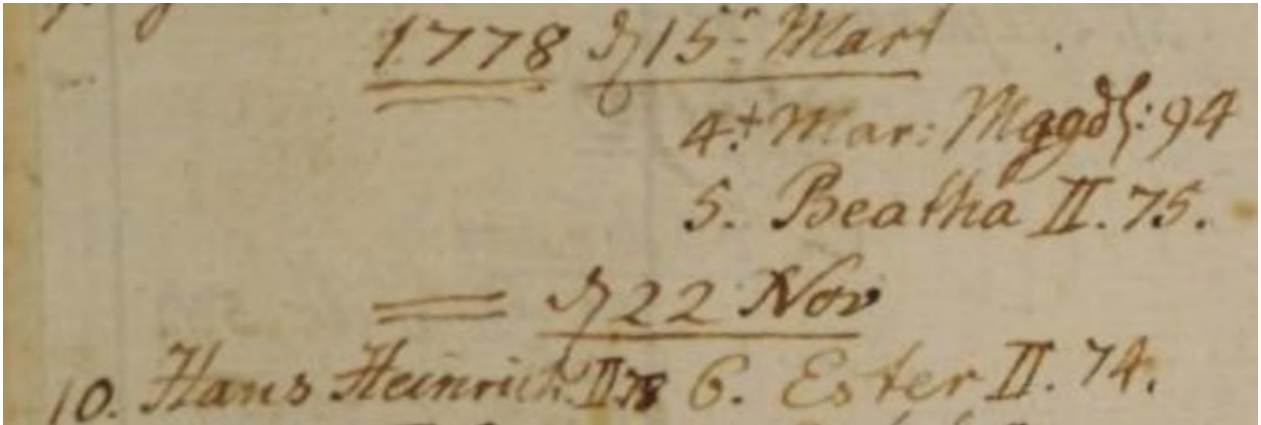 1778 d 15 Mart
4.† Mar: Magdl: 94
5. Beatha II. 75.
= d 22 Nov
10. Hans Heinrich II 78 6. Ester II. 74.